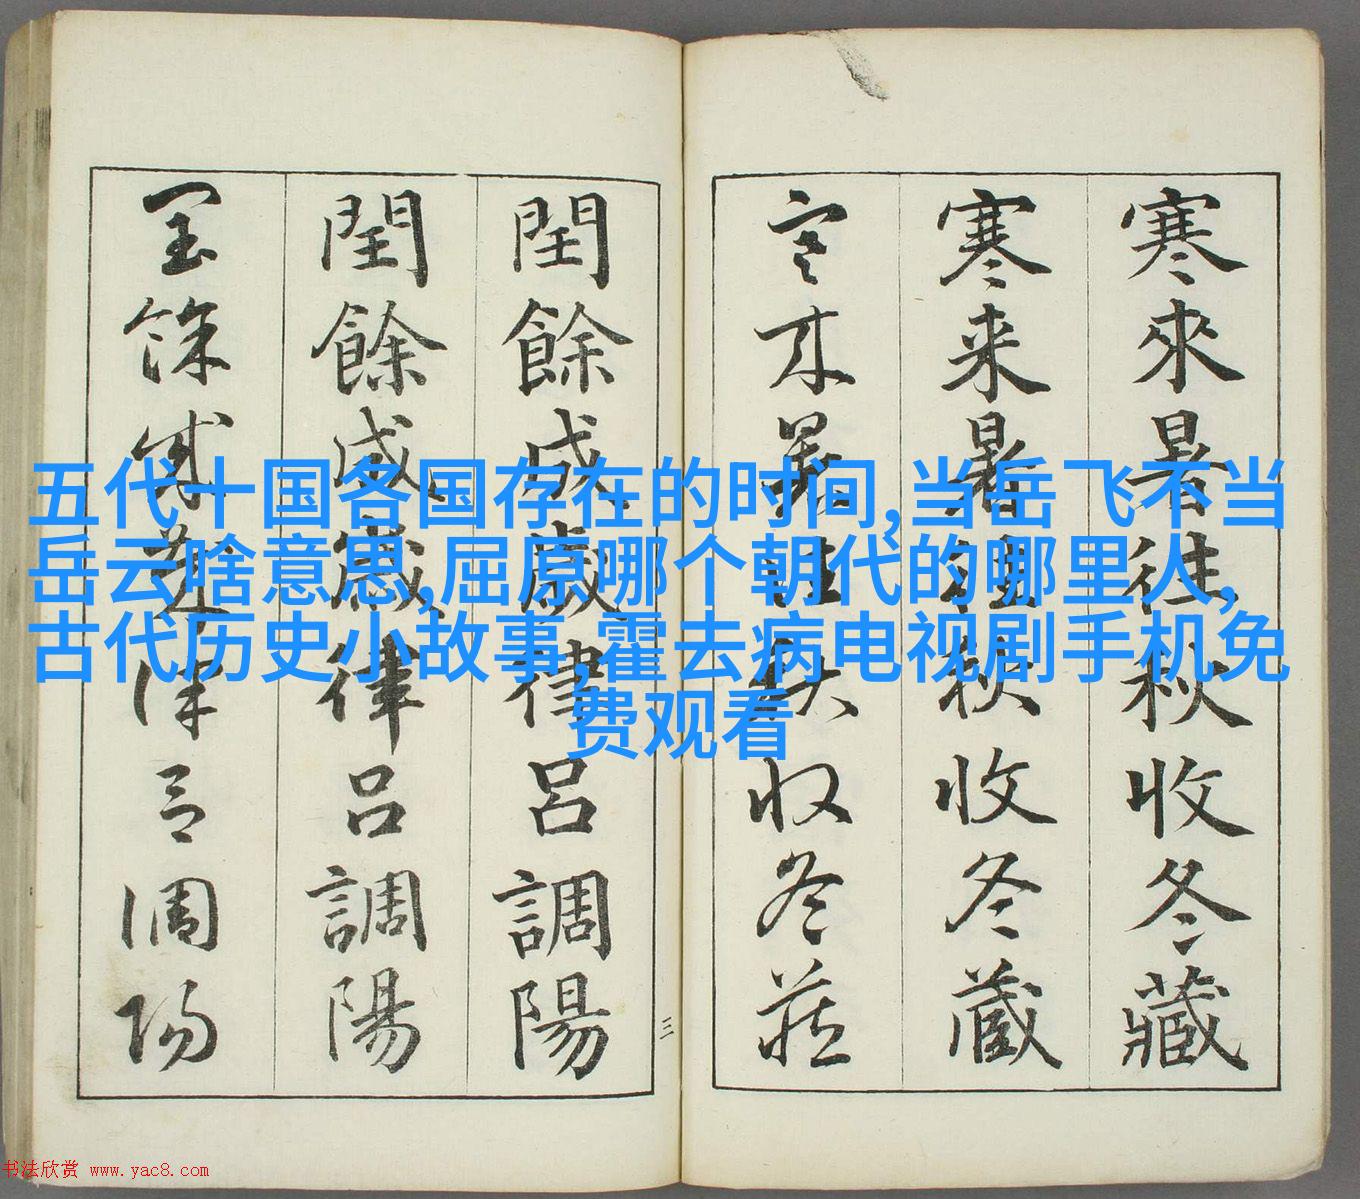 寒來暑往秋收冬藏
寒来暑往秋收冬蔵
寒来暑往秋收冬藏
閏餘成歲律呂調陽
閏餘成歲律呂調陽
閏餘成歲律呂調陽
三
五代十国各国存在的时间,当岳飞不当
岳云啥意思,屈原哪个朝代的哪里人,
古代历史小故事,霍去病电视剧手机免
费观看
书法欣赏 www.yac8.com